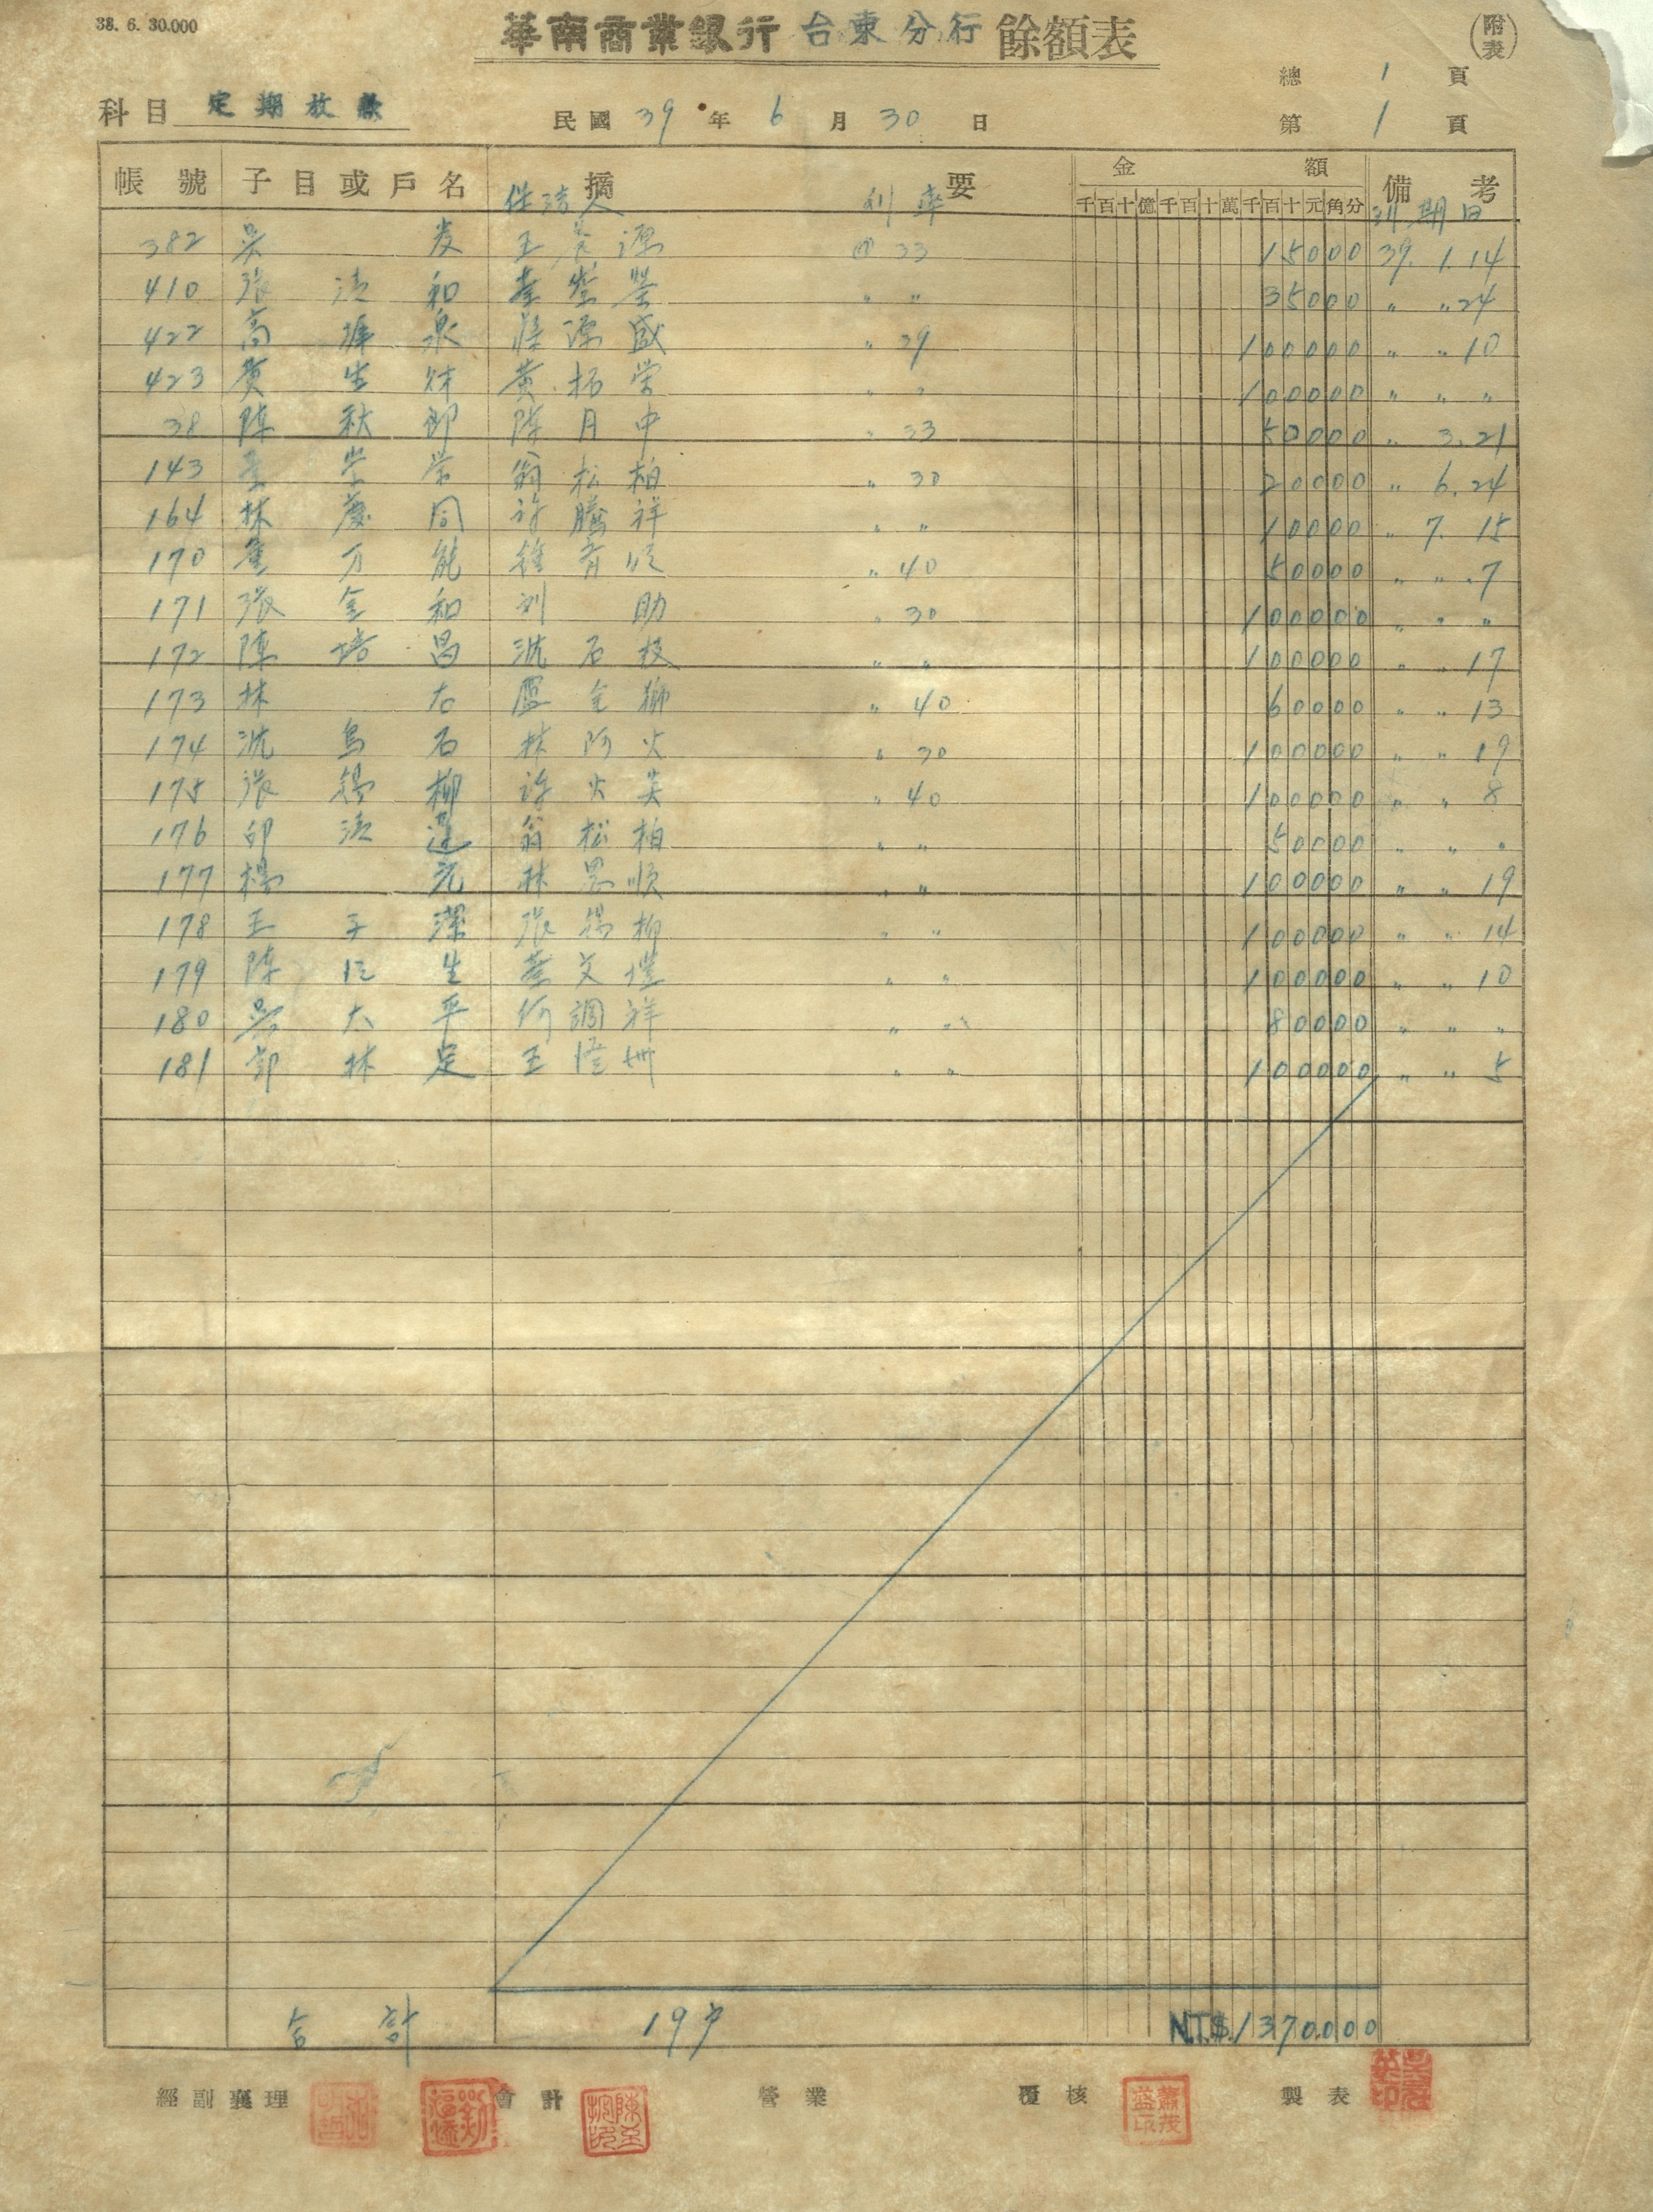 38. 6. 30.000
華南商業銀行 台東分行 餘額表
(附表)
總 1 頁
科目 定期放款 民國 39 年 6 月 30 日 第 1 頁
帳號 子目或戶名 摘要 金額 備考
利率 千百十億千百十萬千百十元角分 期日
382 吳 發 王 源 @ 33 15000 39. 1. 14
410 張 清 和 李 榮 " " 35000 " " 24
422 高 泉 源 盛 " 29 100000 " " 10
423 生 財 黃 拓 榮 " " 100000 " " "
38 陳 秋 郎 陳 月 中 " 33 50000 " 3. 21
143 翁 松 柏 " 30 20000 " 6. 24
164 林 慶 同 許 騰 祥 " " 10000 " 7. 15
170 万 能 " 40 50000 " " 7
171 張 金 和 劉 助 " 30 100000 " " "
172 陳 培 昌 沈 石 枝 " " 100000 " " 17
173 林 右 盧 金 獅 " 40 60000 " " 13
174 沈 烏 石 林 阿 火 " 30 100000 " " 19
175 張 錫 柳 許 火 炎 " 40 100000 " " 8
176 邱 清 蓮 翁 松 柏 " " 50000 " " "
177 楊 元 林 恩 順 " " 100000 " " 19
178 王 子 潔 張 錫 柳 " " 100000 " " 14
179 陳 生 文 " " 100000 " " 10
180 吳 太 平 何 調 祥 " " 80000 " " "
181 林 定 王 " " 100000 " " 5
合計 19戶 N.T.$.1370.000
經副襄理 會計 營業 覆核 製表